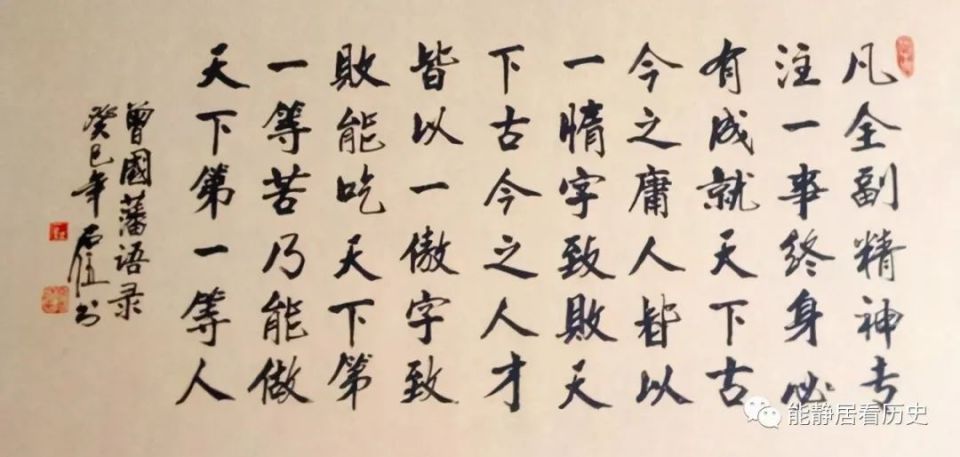 凡全副精神专
注一事终身必
有成就天下古
今之庸人皆以
一惰字致敗天
下古今之人才
皆以一傲字致
敗能吃天下第
一等苦乃能做
天下第一等人
曾國藩语录
癸巳年
能静居看历史